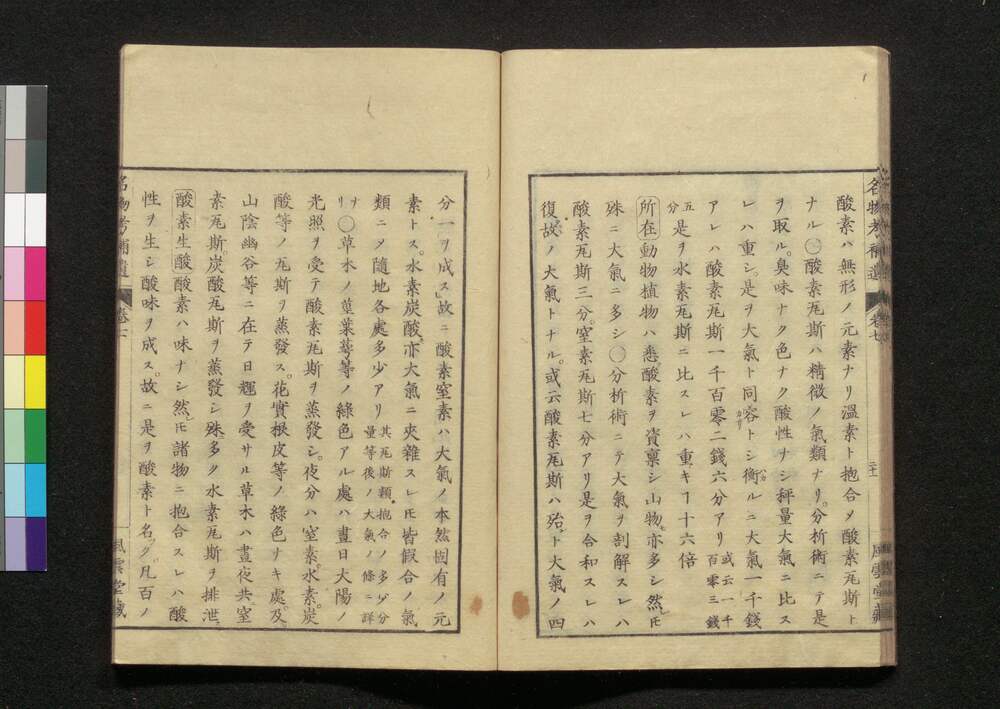 名物考補遺 卷七 二十一 風雲堂藏
酸素ハ無形ノ元素ナリ温素ト抱合〆酸素瓦斯ト
ナル〇酸素瓦斯ハ精微ノ氣類ナリ。分析術ニテ是
ヲ取ル。臭味ナク色ナク酸性ナシ秤量大氣ニ比ス
レハ重シ。是ヲ大氣ト同容トシ衡ルニ大氣一千錢
アレハ酸素瓦斯一千百零二錢六分アリ 或云一千百零三錢
五分 是ヲ水素瓦斯ニ比スレハ重キヿ十六倍
所在 動物植物ハ悉酸素ヲ資稟シ山物亦多シ然𪜈
殊ニ大氣ニ多シ〇分析術ニテ大氣ヲ剖解スレハ
酸素瓦斯三分。窒素瓦斯七分アリ是ヲ合和スレハ
復故ノ大氣トナル。或云酸素瓦斯ハ殆ト大氣ノ四
分一ヲ成ス」故ニ酸素窒素ハ大氣ノ本然固有ノ元
素トス。水素炭酸亦大氣ニ夾雜スレ𪜈皆假合ノ氣
類ニ〆隨地各處多少アリ 其瓦斯類抱合ノ多少分量等後ノ大氣ノ條ニ詳
ナリ 〇草木ノ莖葉蕚等ノ綠色アル處ハ晝日大陽ノ
光照ヲ受テ酸素瓦斯ヲ蒸發シ。夜分ハ窒素。水素。炭
酸等ノ瓦斯ヲ蒸發ス。花實根皮等ノ綠色ナキ處。及
山陰幽谷等ニ在テ日輝ヲ受サル草木ハ晝夜共窒
素瓦斯。炭酸瓦斯ヲ蒸發シ殊多ク水素瓦斯ヲ排泄
酸素生酸 酸素ハ味ナシ然𪜈諸物ニ抱合スレハ酸
性ヲ生シ酸味ヲ成ス。故ニ是ヲ酸素ト名ツグ。凡百ノ
名物考補遺 卷七 風雲堂藏